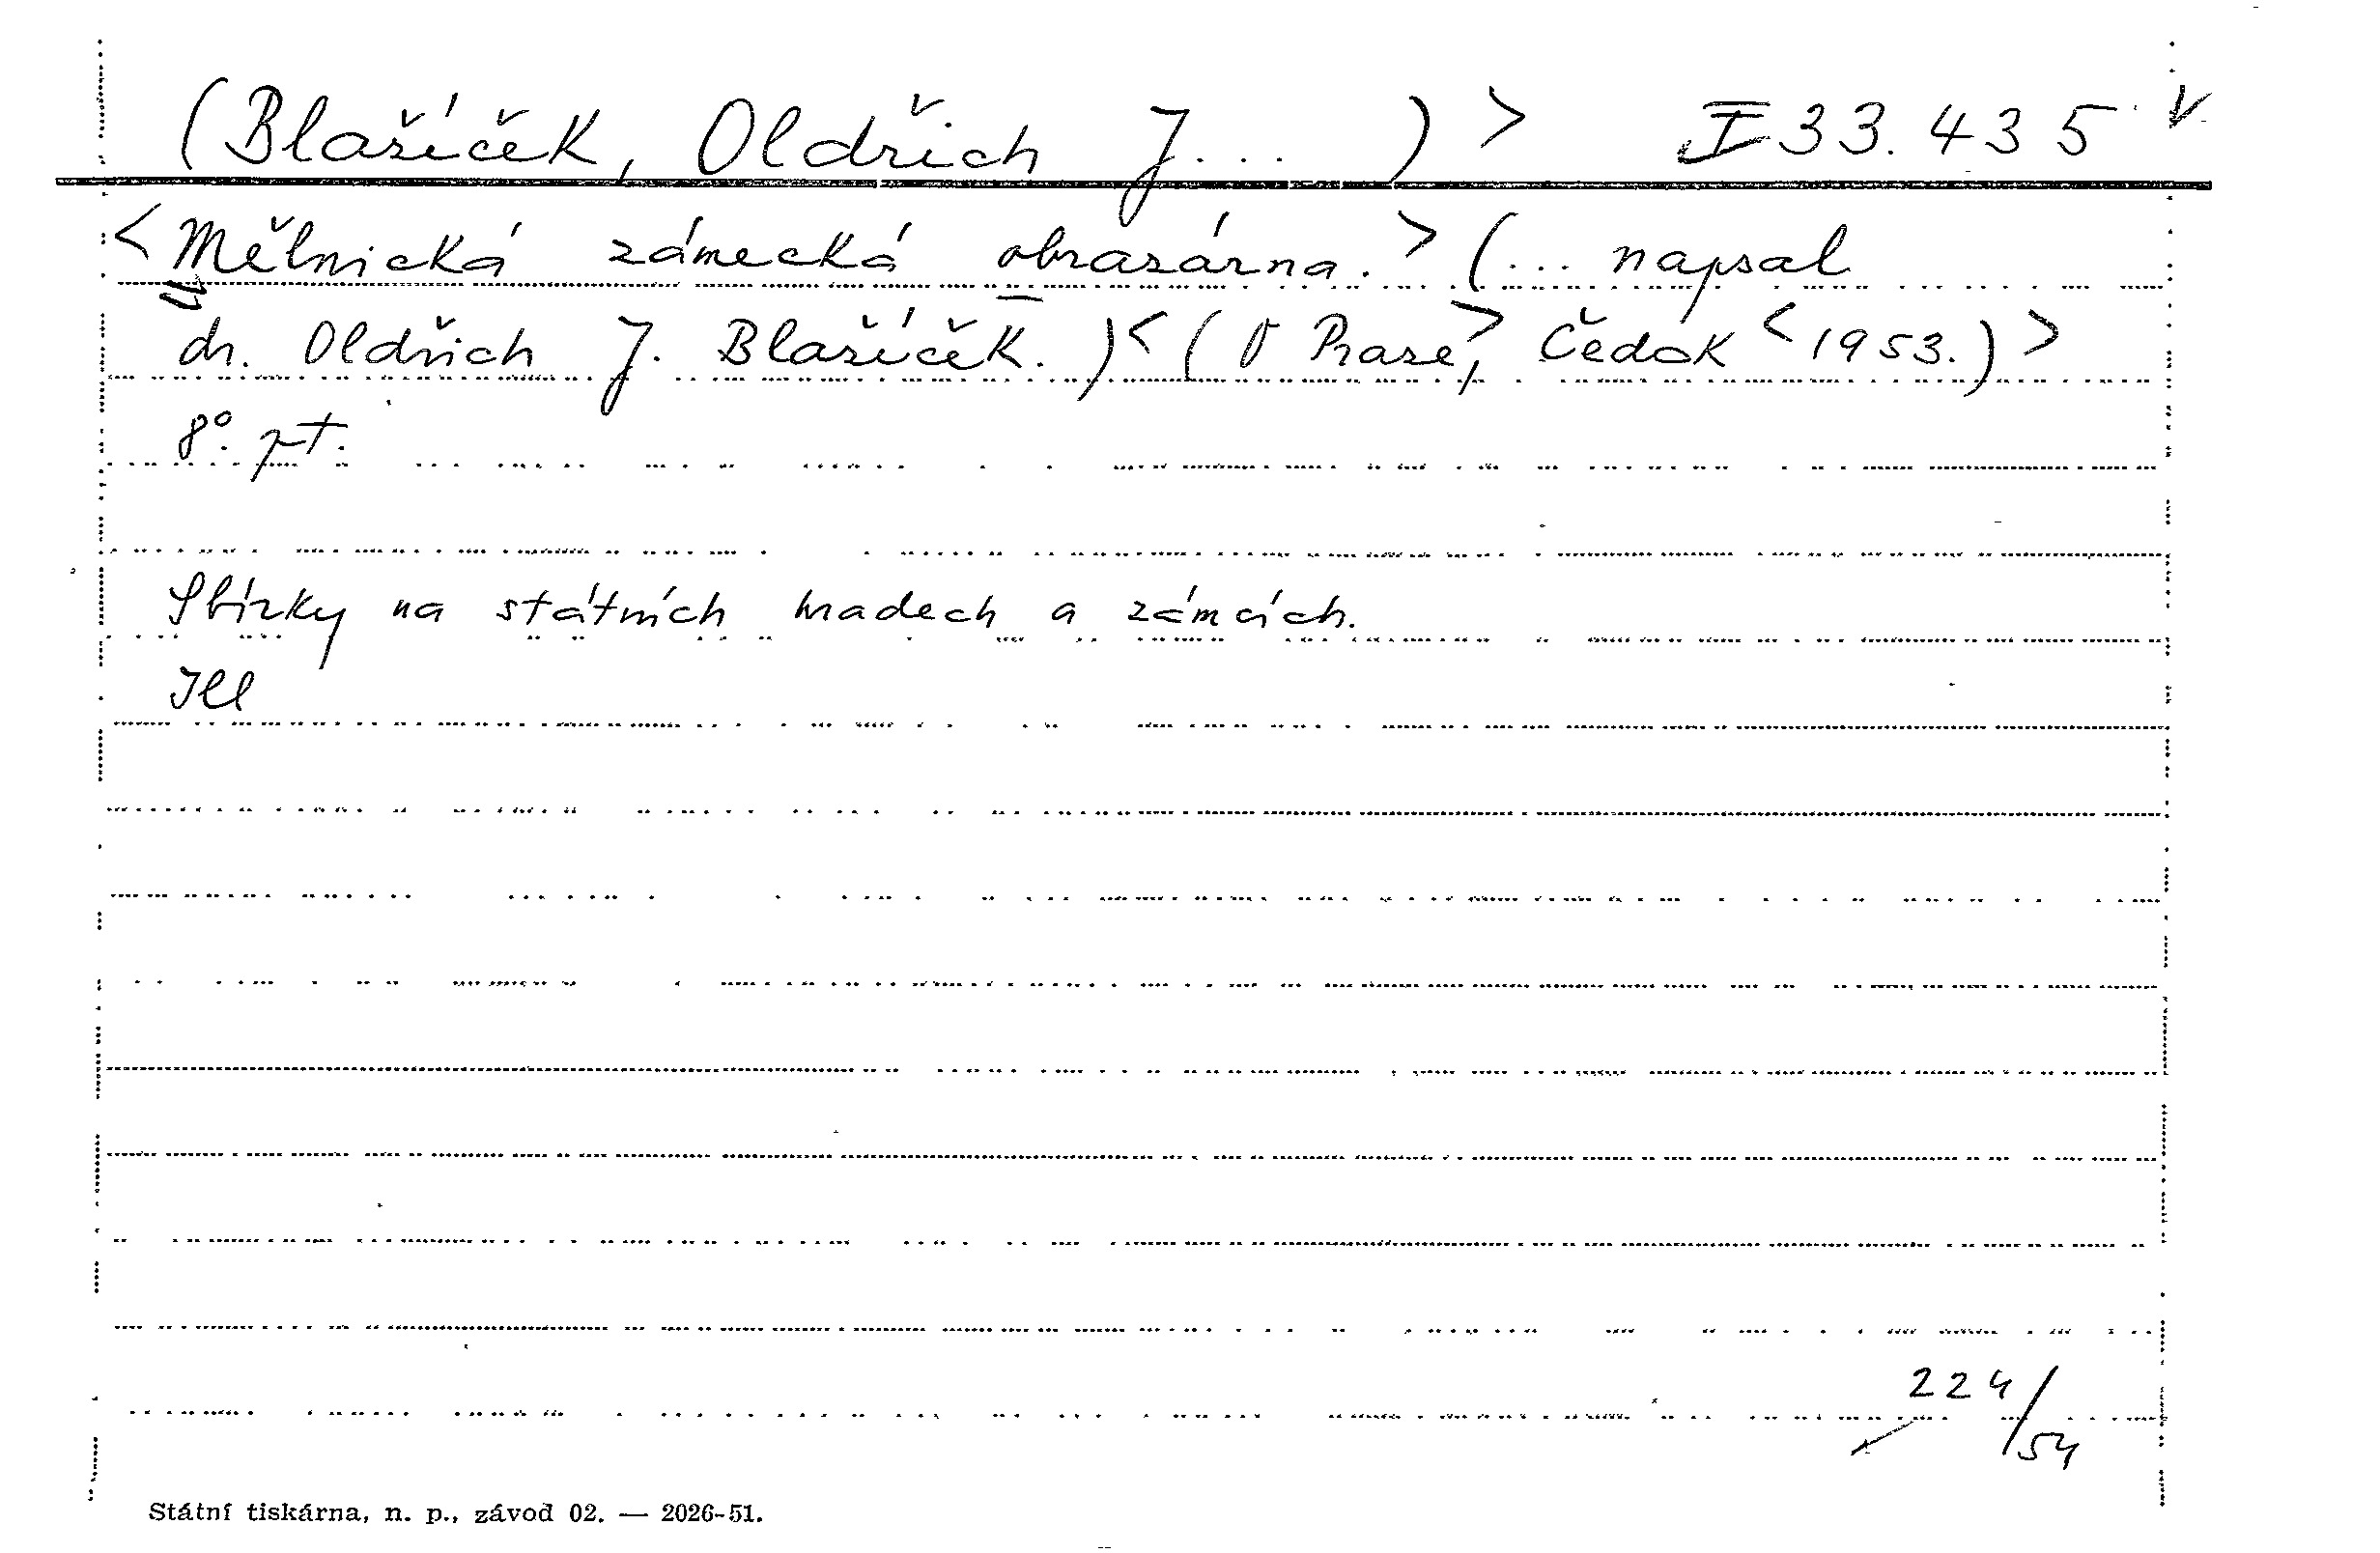 (Blažíček, Oldřich J... )> I 33.435
<Mělnická zámecká obrazárna.> (... napsal
dr. Oldřich J. Blažíček.)<(V Praze,> Čedok <1953.)>
8°. pt.
Sbírky na státních hradech a zámcích.
Ill
224/54
Státní tiskárna, n. p., závod 02. — 2026-51.